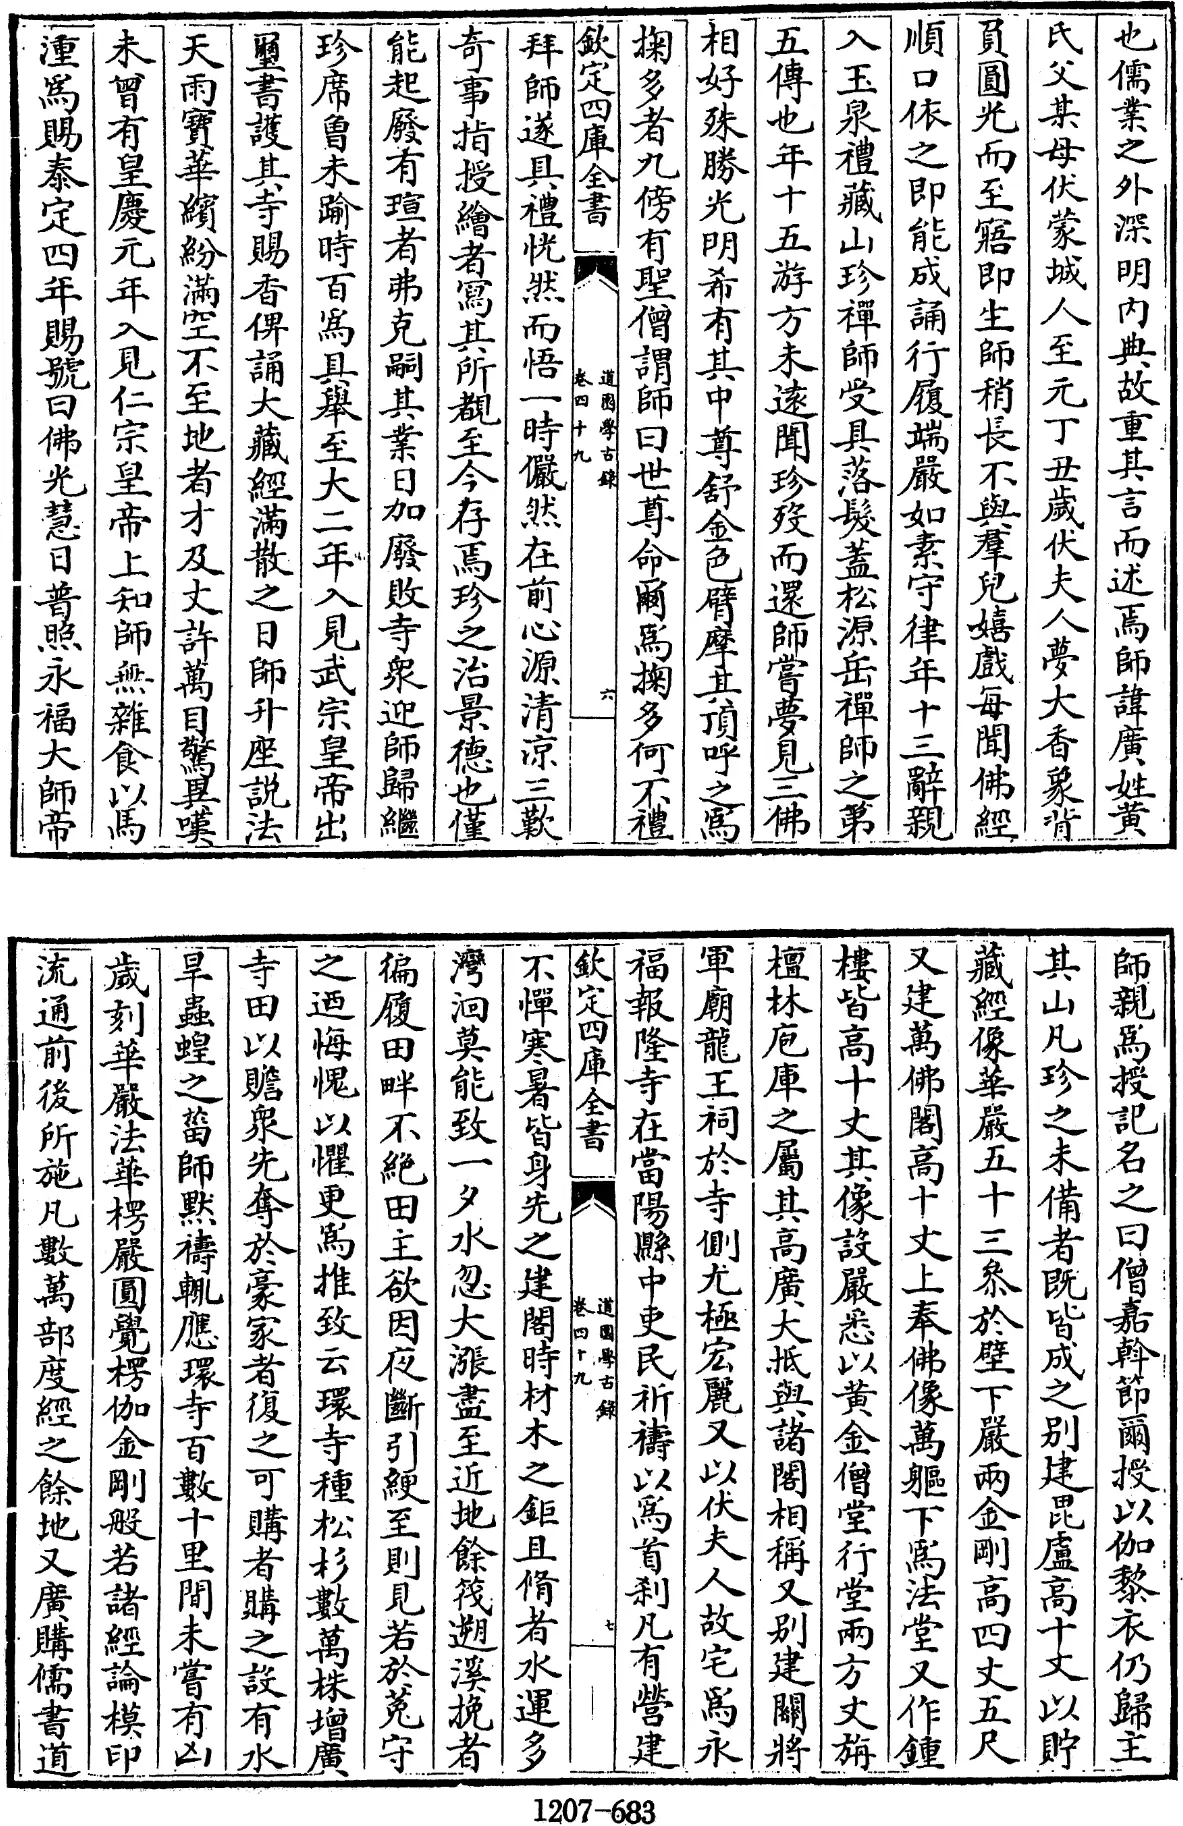 也儒業之外深明内典故重其言而述焉師諱廣姓黄
氏父某母伏蒙城人至元丁丑歲伏夫人夢大香象背
負圓光而至寤即生師稍長不與羣兒嬉戲每聞佛經
順口依之即能成誦行履端嚴如素守律年十三辭親
入玉泉禮藏山珍禪師受具落髮蓋松源岳禪師之第
五傳也年十五游方未遠聞珍歿而還師嘗夢見三佛
相好殊勝光明希有其中尊舒金色臂摩其頂呼之爲
掬多者九傍有聖僧謂師曰世尊命爾爲掬多何不禮
欽定四庫全書
道園學古録
卷四十九
六
拜師遂具禮恍然而悟一時儼然在前心源清凉三歎
奇事指授繪者寫其所覩至今存焉珍之治景德也僅
能起廢有瑄者弗克嗣其業日加廢敗寺衆迎師歸繼
珍席曾未踰時百爲具舉至大二年入見武宗皇帝出
璽書護其寺賜香俾誦大藏經滿散之日師升座説法
天雨寶華繽紛滿空不至地者才及丈許萬目驚異嘆
未曾有皇慶元年入見仁宗皇帝上知師無雜食以馬
湩爲賜泰定四年賜號曰佛光慧日普照永福大師帝
師親爲授記名之曰僧嘉斡節爾授以伽黎衣仍歸主
其山凡珍之未備者既皆成之别建毘盧高十丈以貯
藏經像華嚴五十三叅於壁下嚴兩金剛高四丈五尺
又建萬佛閣高十丈上奉佛像萬軀下爲法堂又作鍾
樓皆高十丈其像設嚴悉以黄金僧堂行堂兩方丈旃
檀林庖庫之屬其高廣大抵與諸閣相稱又别建關將
軍廟龍王祠於寺側尤極宏麗又以伏夫人故宅爲永
福報隆寺在當陽縣中吏民祈禱以爲首刹凡有營建
欽定四庫全書
道園學古録
卷四十九
七
不憚寒暑皆身先之建閣時材木之鉅且脩者水運多
灣洄莫能致一夕水忽大漲盡至近地餘筏遡溪挽者
徧履田畔不絶田主欲因夜斷引綆至則見若於菟守
之迺悔愧以懼更爲推致云環寺種松杉數萬株增廣
寺田以贍衆先奪於豪家者復之可購者購之設有水
旱蟲蝗之菑師默禱輒應環寺百數十里間未嘗有凶
歲刻華嚴法華楞嚴圓覺楞伽金剛般若諸經論模印
流通前後所施凡數萬部度經之餘地又廣購儒書道
1207-683